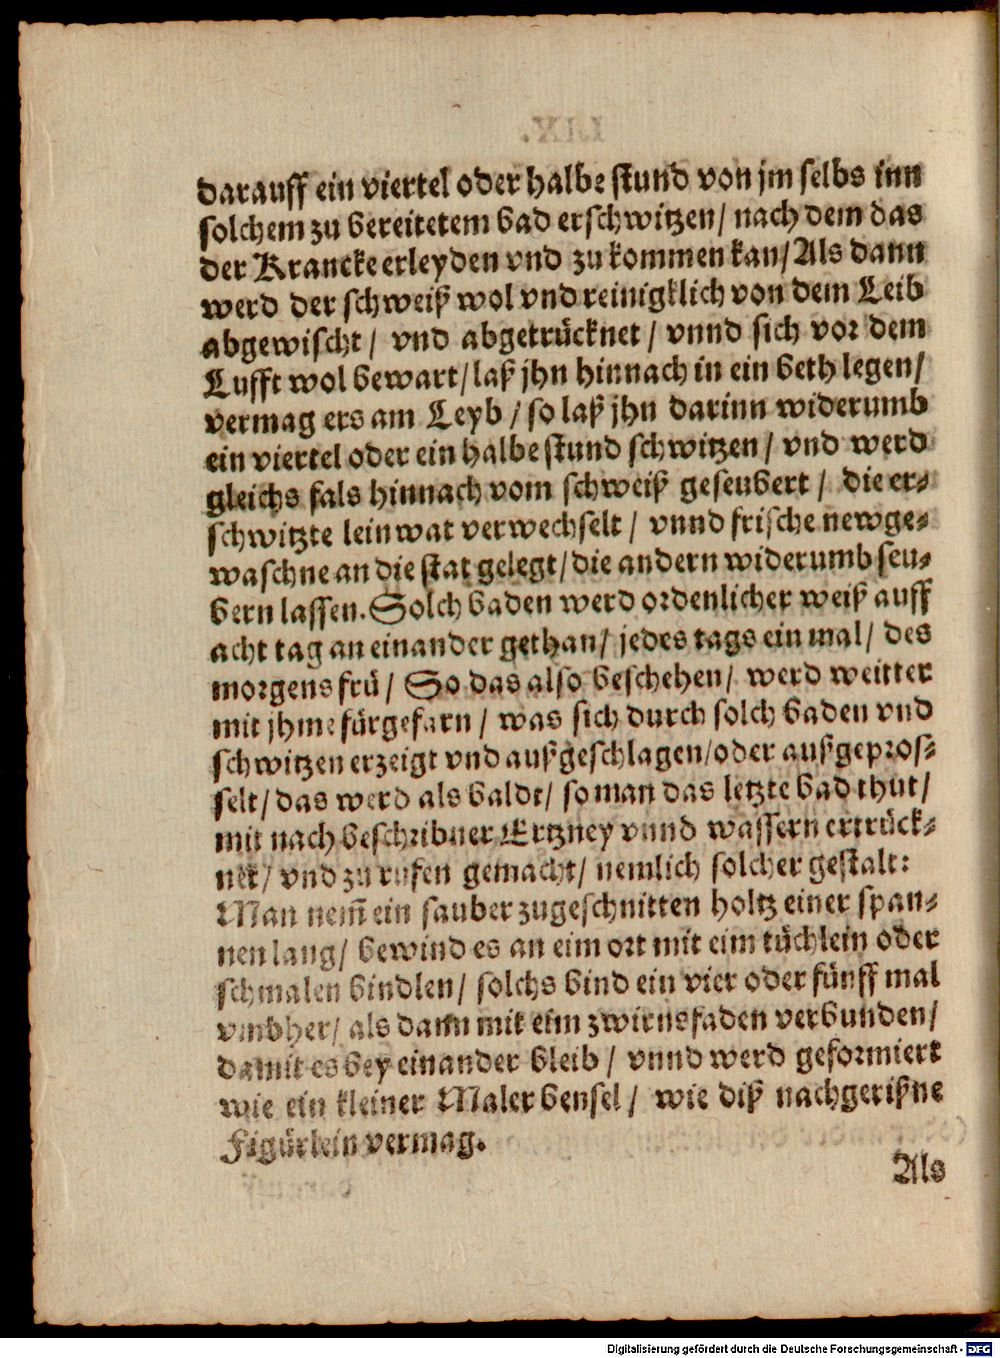 darauff ein viertel oder halbe stund von jm selbs inn
solchem zu bereitetem bad erschwitzen / nach dem das
der Krancke erleyden vnd zu kommen kan / Als dann
werd der schweiß wol vnd reinigklich von dem Leib
abgewischt / vnd abgetrücknet / vnnd sich vor dem
Lufft wol bewart / laß jhn hinnach in ein beth legen /
vermag ers am Leyb / so laß jhn darinn widerumb
ein viertel oder ein halbe stund schwitzen / vnd werd
gleichs fals hinnach vom schweiß geseubert / die er⸗
schwitzte leinwat verwechselt / vnnd frische newge⸗
waschne an die stat gelegt / die andern widerumb seu⸗
bern lassen. Solch baden werd ordenlicher weiß auff
acht tag an einander gethan / jedes tags ein mal / des
morgens frü / So das also beschehen / werd weitter
mit jhme fürgefarn / was sich durch solch baden vnd
schwitzen erzeigt vnd außgeschlagen / oder außgepros⸗
selt / das werd als baldt / so man das letzte bad thut /
mit nach beschribner Ertzney vnnd wassern ertrück⸗
net / vnd zu rufen gemacht / nemlich solcher gestalt:
Man nem̃ ein sauber zugeschnitten holtz einer span⸗
nen lang / bewind es an eim ort mit eim tüchlein oder
schmalen bindlen / solchs bind ein vier oder fünff mal
vmbher / als dann mit eim zwirnsfaden verbunden /
damit es bey einander bleib / vnnd werd geformiert
wie ein kleiner Maler bensel / wie diß nachgerißne
Figürlein vermag.
Als
Digitalisierung gefördert durch die Deutsche Forschungsgemeinschaft - DFG